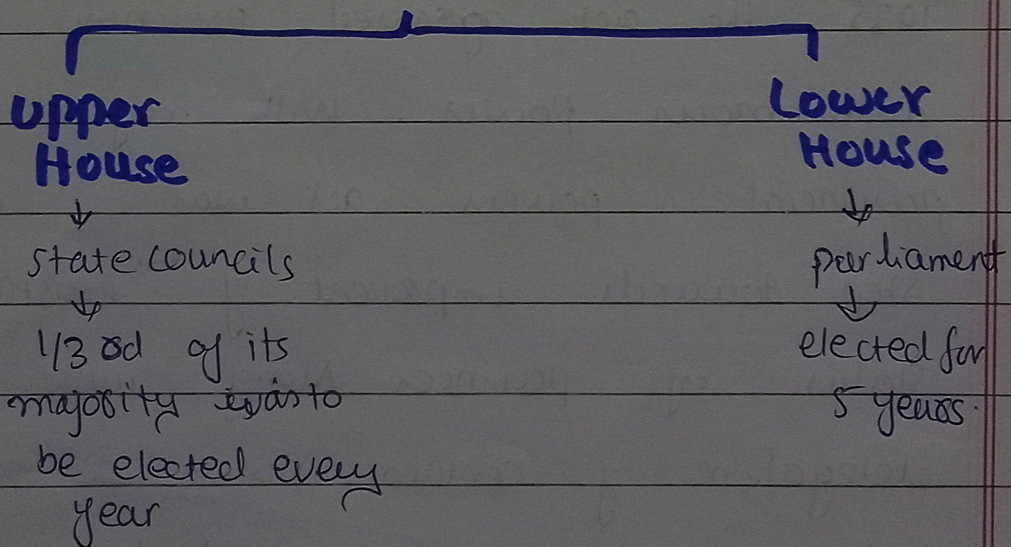 Upper
House
↓
state councils
↓
1/3 rd of its
majority was to
be elected every
year
Lower
House
↓
parliament
↓
elected for
5 years.